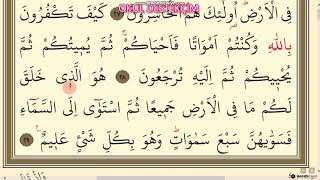 OKUL DESTEKCİM
فِى الْاَرْضِۜ اُو۬لٰٓئِكَ هُمُ الْخَاسِرُونَ ﴿٢٧﴾ كَيْفَ تَكْفُرُونَ
بِاللّٰهِ وَكُنْتُمْ اَمْوَاتًا فَاَحْيَاكُمْۚ ثُمَّ يُم۪يتُكُمْ ثُمَّ
يُحْي۪يكُمْ ثُمَّ اِلَيْهِ تُرْجَعُونَ ﴿٢٨﴾ هُوَ الَّذ۪ى خَلَقَ
لَكُمْ مَا فِى الْاَرْضِ جَم۪يعًا ثُمَّ اسْتَوٰٓى اِلَى السَّمَٓاءِ
فَسَوّٰيهُنَّ سَبْعَ سَمٰوَاتٍۜ وَهُوَ بِكُلِّ شَىْءٍ عَل۪يمٌ۟ ﴿٢٩﴾